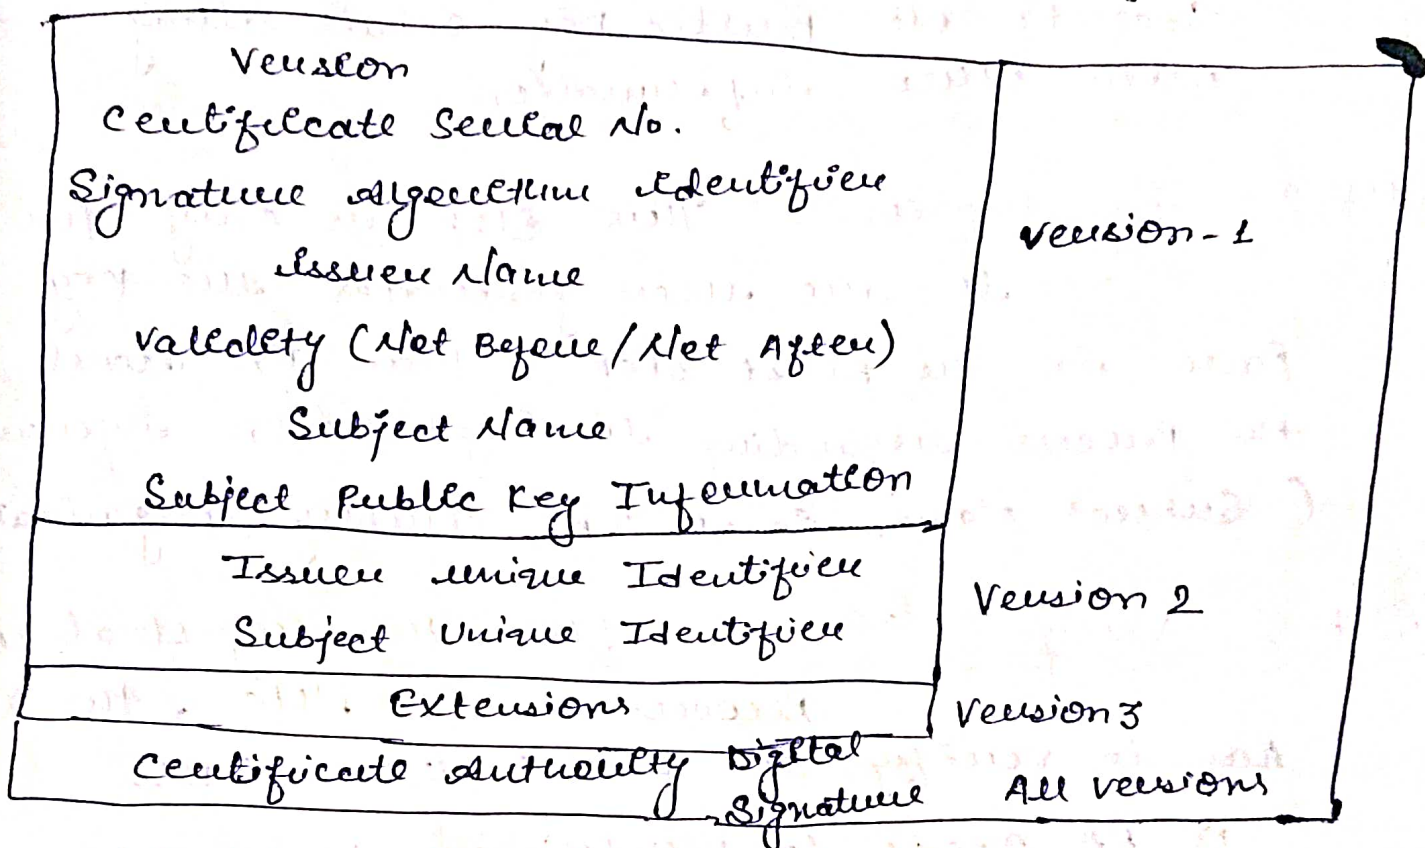 Version
Certificate Serial No.
Signature Algorithm Identifier
Issuer Name
Version-1
Validity (Not Before/Not After)
Subject Name
Subject Public Key Information
Issuer unique Identifier
Version 2
Subject Unique Identifier
Extensions
Version 3
Certificate Authority Digital
Signature
All versions